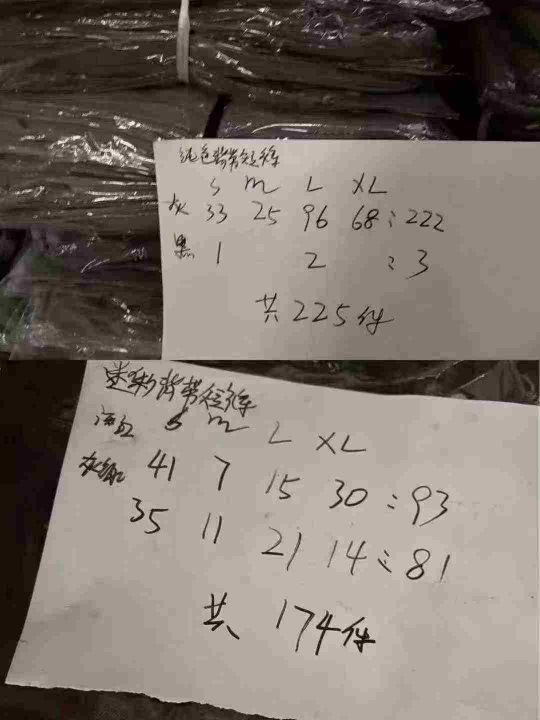 纯色背带短裤
S m L XL
灰 33 25 96 68:222
黑 1 2 :3
共225件
背带短裤
S m L XL
41 7 15 30:93
35 11 21 14:81
共174件